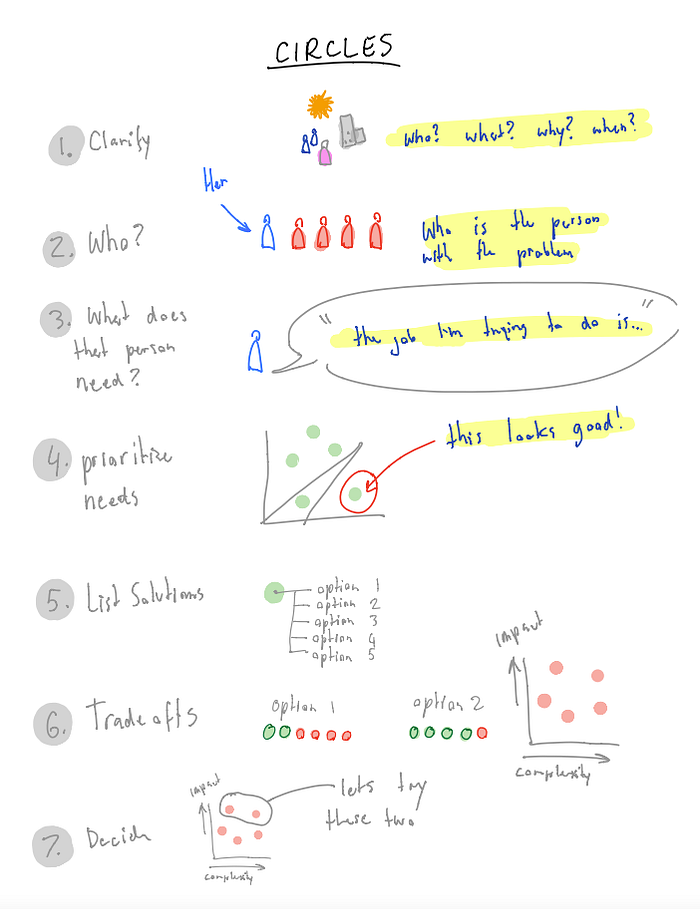 CIRCLES
1. Clarify
who? what? why? when?
Her
2. Who?
Who is the person
with the problem
3. What does
that person
need?
"the job I'm trying to do is..."
4. prioritize
needs
this looks good!
5. List Solutions
option 1
option 2
option 3
option 4
option 5
6. Trade offs
option 1
option 2
impact
complexity
7. Decide
impact
complexity
lets try
these two